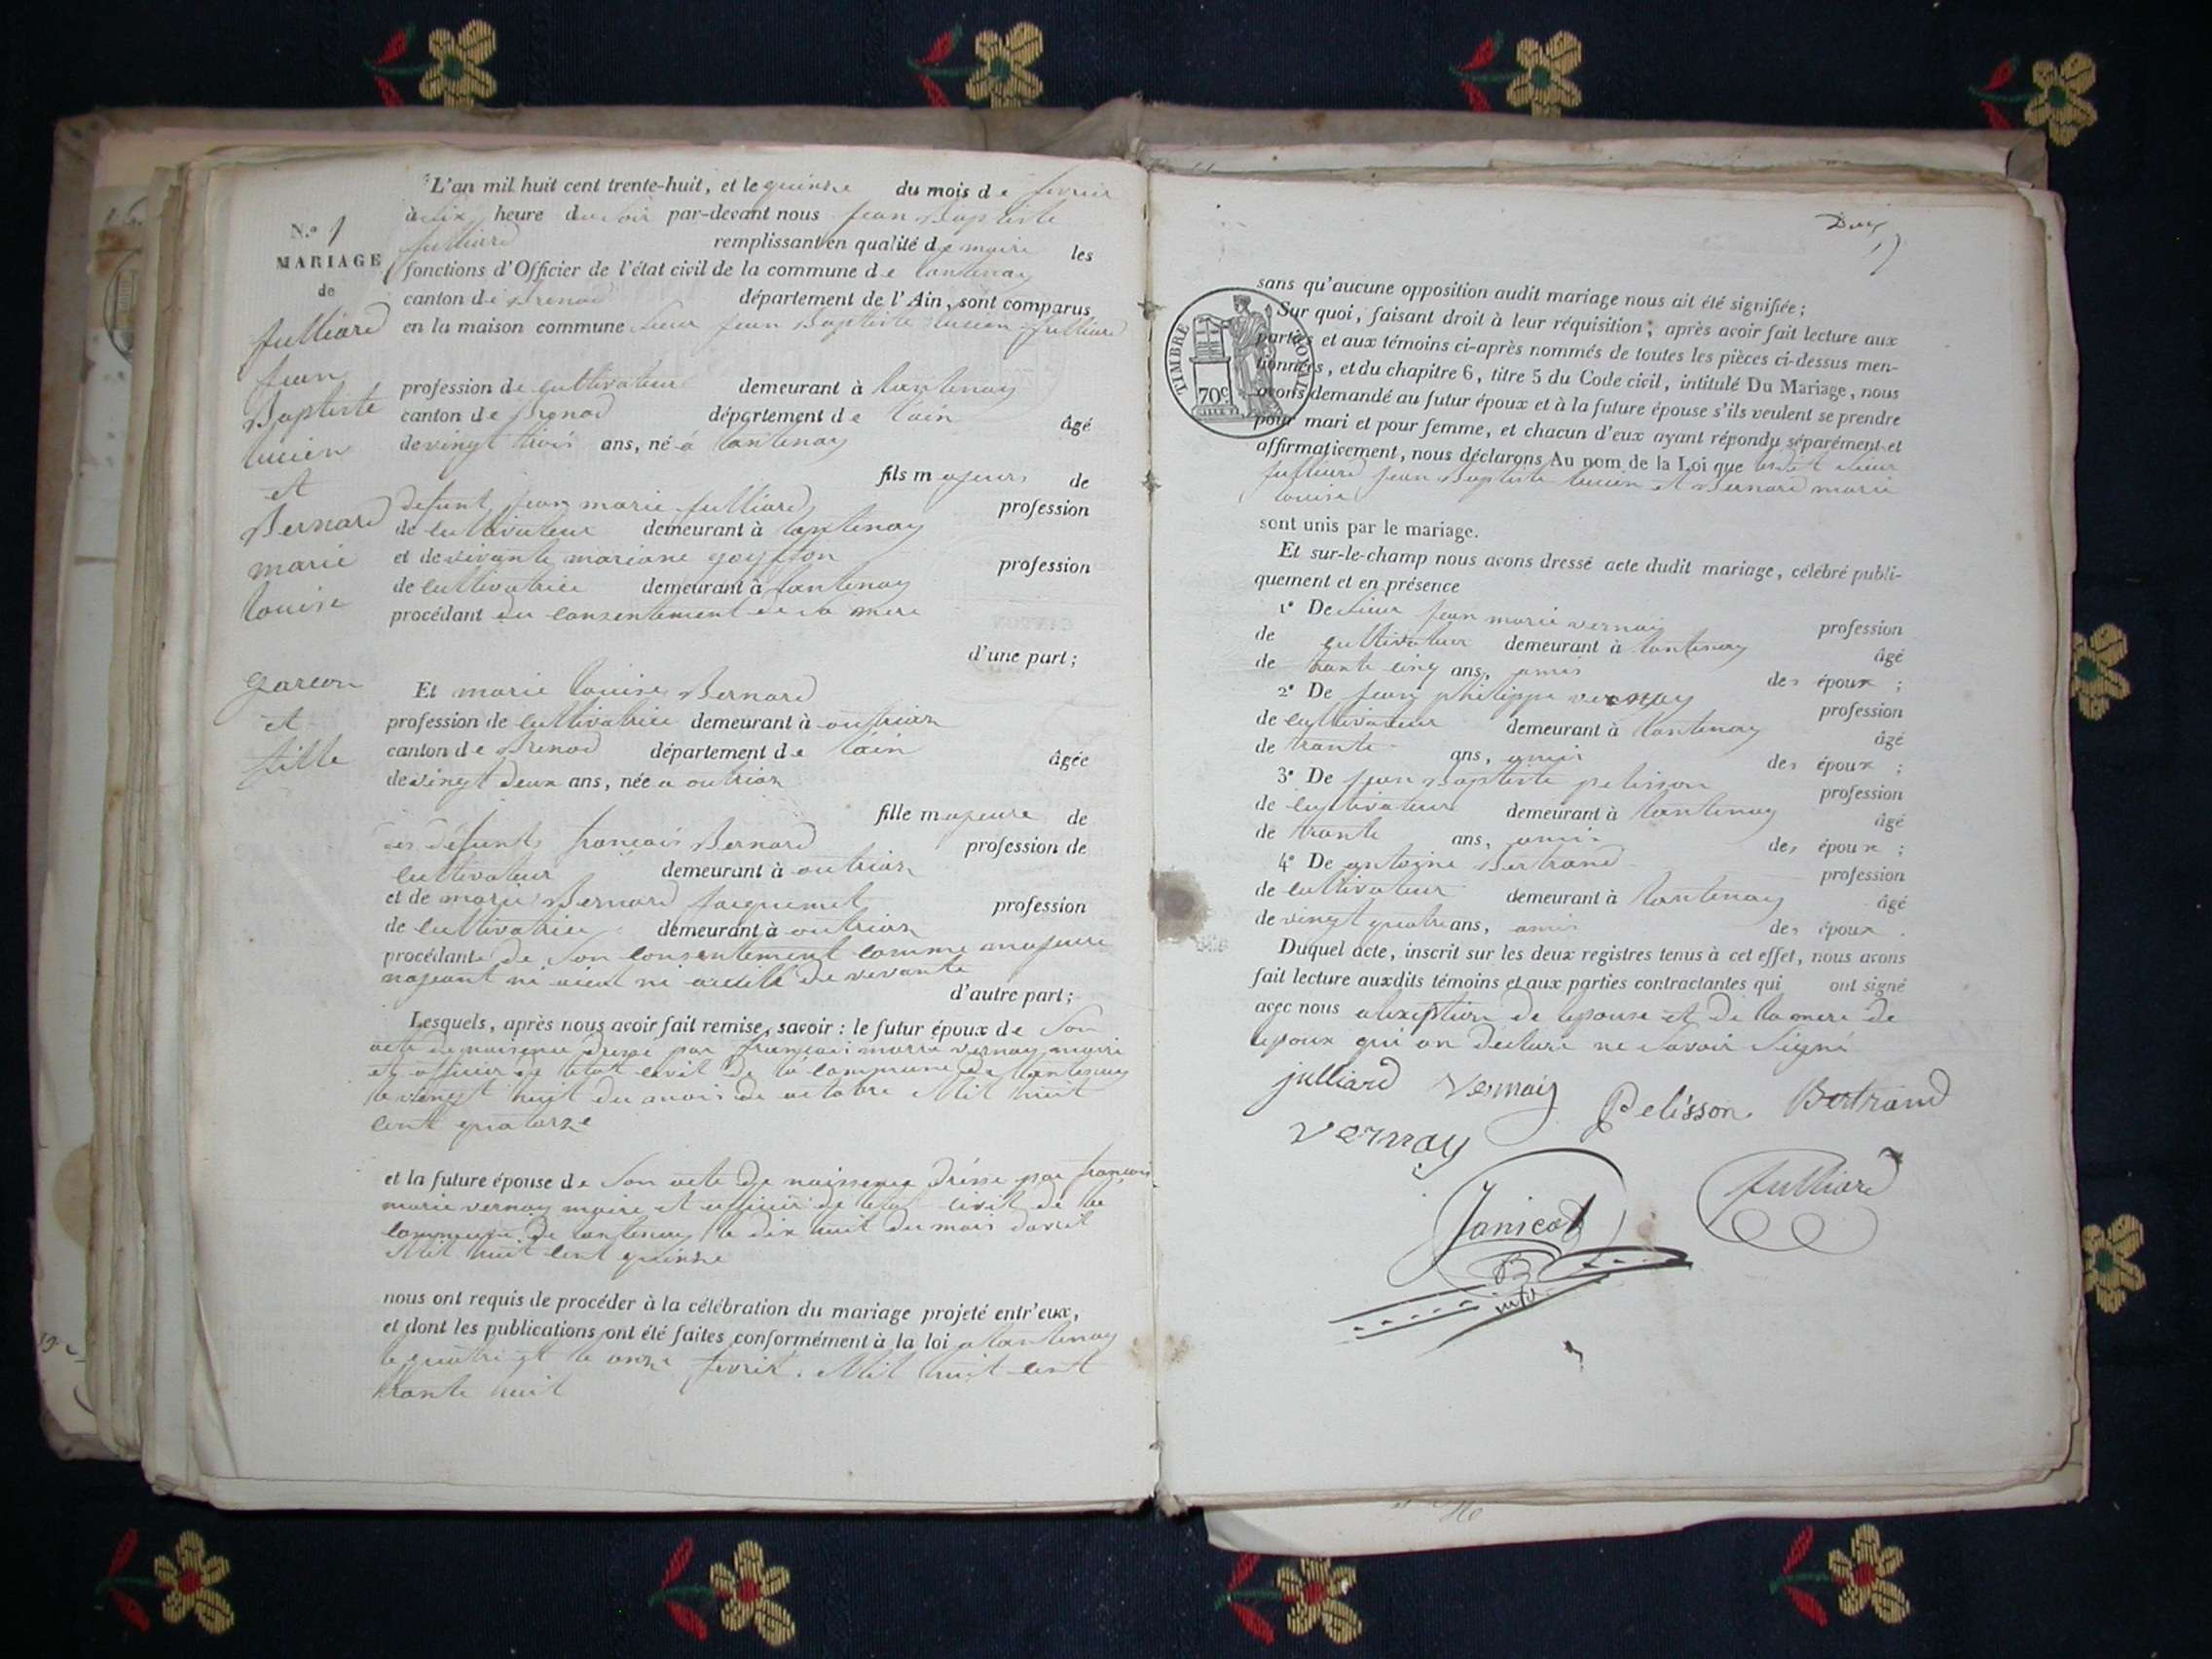 L'an mil huit cent trente-huit, et le quinze du mois de fevrier
à six heure du soir par-devant nous jean Baptiste
julliard remplissant en qualité de maire les
fonctions d'Officier de l'état civil de la commune de lantenay
canton de Brenod département de l'Ain, sont comparus
en la maison commune sieur jean Baptiste lucien julliard
profession de cultivateur demeurant à lantenay
canton de Brenod département de lain âgé
de vingt trois ans, né à lantenay
fils majeur de
defunt jean marie julliard profession
de cultivateur demeurant à lantenay
et de vivante mariane goyffon profession
de cultivatrice demeurant à lantenay
procédant du consentement de sa mere
d'une part;
N.º 1
MARIAGE
de
julliard
jean
Baptiste
lucien
et
Bernard
marie
louise
garcon
et
fille
Et marie louise Bernard
profession de cultivatrice demeurant à outriaz
canton de Brenod département de lain âgée
de vingt deux ans, née a outriaz
fille majeure de
des défunts françois Bernard profession de
cultivateur demeurant à outriaz
et de marie Bernard jacquemet profession
de cultivatrice demeurant à outriaz
procédante de son consentement comme majeure
nayant ni aieul ni aieulle de vivante
d'autre part;
Lesquels, après nous avoir fait remise, savoir: le futur époux de son
acte de naisence dressé par françois marie vernay maire
et officier de letat civil de la commune de lantenay
le vingt huit du mois de octobre Mil huit
cent quatorze
et la future épouse de son acte de naissence dressé par françois
marie vernay maire et officier de letat civil de la
commune de lantenay le dix huit du mois davril
Mil huit cent quinze
nous ont requis de procéder à la célébration du mariage projeté entr'eux,
et dont les publications ont été faites conformément à la loi a lantenay
le quatre et le onze fevrier Mil huit cent
trante huit
TIMBRE ROYAL
70c
sans qu'aucune opposition audit mariage nous ait été signifiée;
Sur quoi, faisant droit à leur réquisition; après avoir fait lecture aux
parties et aux témoins ci-après nommés de toutes les pièces ci-dessus men-
tionnées, et du chapitre 6, titre 5 du Code civil, intitulé Du Mariage, nous
avons demandé au futur époux et à la future épouse s'ils veulent se prendre
pour mari et pour femme, et chacun d'eux ayant répondu séparément et
affirmativement, nous déclarons Au nom de la Loi que ledit sieur
julliard jean Baptiste lucien et Bernard marie
louise
sont unis par le mariage.
Et sur-le-champ nous avons dressé acte dudit mariage, célébré publi-
quement et en présence
1º De sieur jean marie vernay profession
de cultivateur demeurant à lantenay âgé
de trante cinq ans, amis des époux;
2º De jean philippe vernay profession
de cultivateur demeurant à lantenay âgé
de trante ans, amis des époux;
3º De jean Baptiste pelisson profession
de cultivateur demeurant à lantenay âgé
de trante ans, amis des époux;
4º De antoine Bertrand profession
de cultivateur demeurant à lantenay âgé
de vingt quatre ans, amis des époux.
Duquel acte, inscrit sur les deux registres tenus à cet effet, nous avons
fait lecture auxdits témoins et aux parties contractantes qui ont signé
avec nous alexeption de lepouse et de la mere de
lepoux qui on declaré ne savoir signé
julliard vernay Pelisson Bertrand
vernay
Janicot julliard